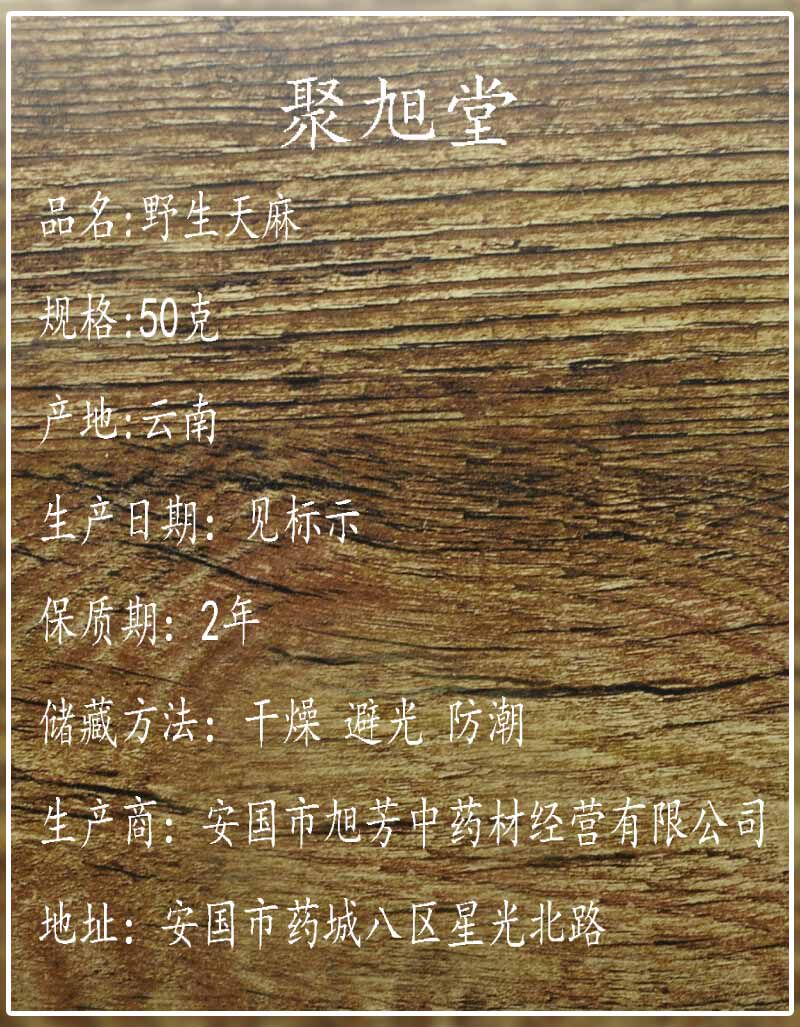 聚旭堂
品名:野生天麻
规格:50克
产地:云南
生产日期：见标示
保质期：2年
储藏方法：干燥 避光 防潮
生产商：安国市旭芳中药材经营有限公司
地址：安国市药城八区星光北路